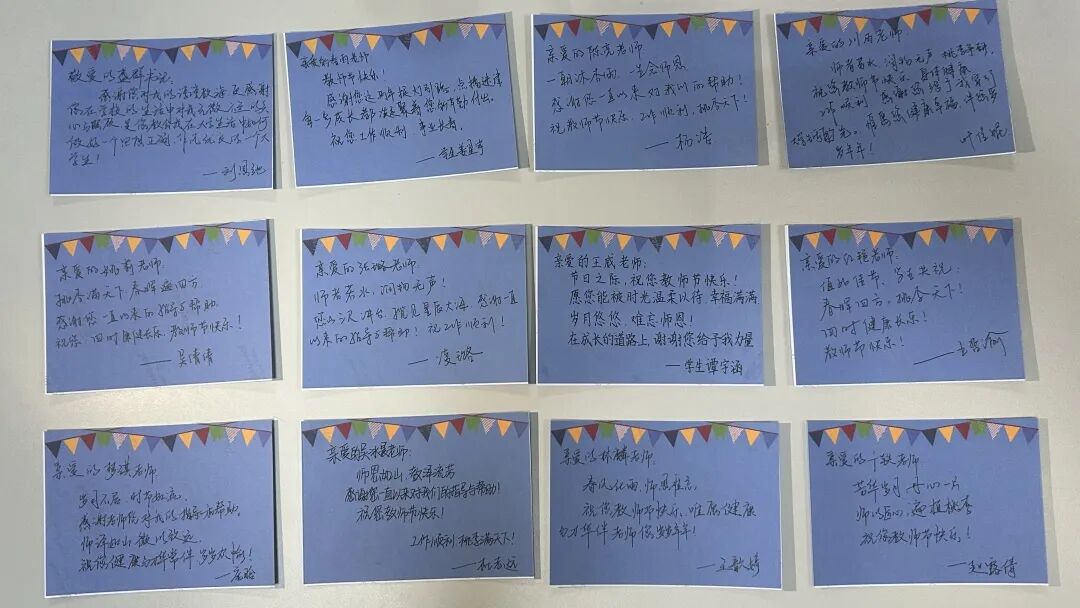 敬爱的书记:
感谢您对我的谆谆教诲,更感谢
您在学校的生活中对我无微不至的关
心与照顾,是您教会我在大学生活中如何
做好一个品德正派、作风优良的一个大
学生!
亲爱的老师
教师节快乐!
感谢您这两年提灯引路,点拨迷津
每一步成长都凝聚着您的辛勤付出。
祝您工作顺利,事业长青。
亲爱的陈亮老师
一片冰心,一生念师恩
感谢您一直以来对我们的帮助!
祝教师节快乐,工作顺利,桃李天下!
——杨浩
亲爱的老师
师者若水,润物无声,桃李芬芳
祝您教师节快乐,身体健康
工作顺利,感谢您给予我
愿您健康幸福
岁年年!
叶佳妮
亲爱的姚莉老师:
桃李满天下 春晖遍四方
感谢您一直以来的指导与帮助。
祝您:四时康健长乐,教师节快乐!
——吴倩倩
亲爱的张璐老师:
师者若水,润物无声!
您山河,星辰大海,感谢一直
以来的指导与帮助!祝工作顺利!
亲爱的王威老师:
节日之际,祝您教师节快乐!
愿您能被时光温柔以待 幸福满满
岁月悠悠,难忘师恩!
在成长的道路上,谢谢您给予我力量
——学生谭宇涵
亲爱的老师:
值此佳节,
春晖四方,桃李天下!
四时健康长乐!
教师节快乐!
亲爱的梦淇老师
岁月不居,时节如流。
感谢老师您对我的指导和帮助。
师泽如山,微以致远
祝您健康与幸福伴 岁岁欢愉!
亲爱的吴冰晨老师:
师恩如山,教泽流芳
感谢您一直以来对我们的指导与帮助!
祝您教师节快乐!
工作顺利 桃李满天下!
——杜志远
亲爱的林麟老师:
春风化雨,师恩难忘
祝您教师节快乐,唯愿健康
与力量伴老师您岁岁年年!
——王歆婷
亲爱的老师
芳华岁月 丹心一片
师以匠心,遍植桃李
祝您教师节快乐!
——赵露倩